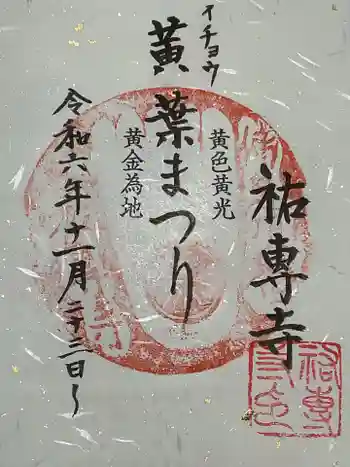 祐專寺
黄色黄光
イチョウ
黄葉まつり
黄金為地
令和六年十一月二十三日〜